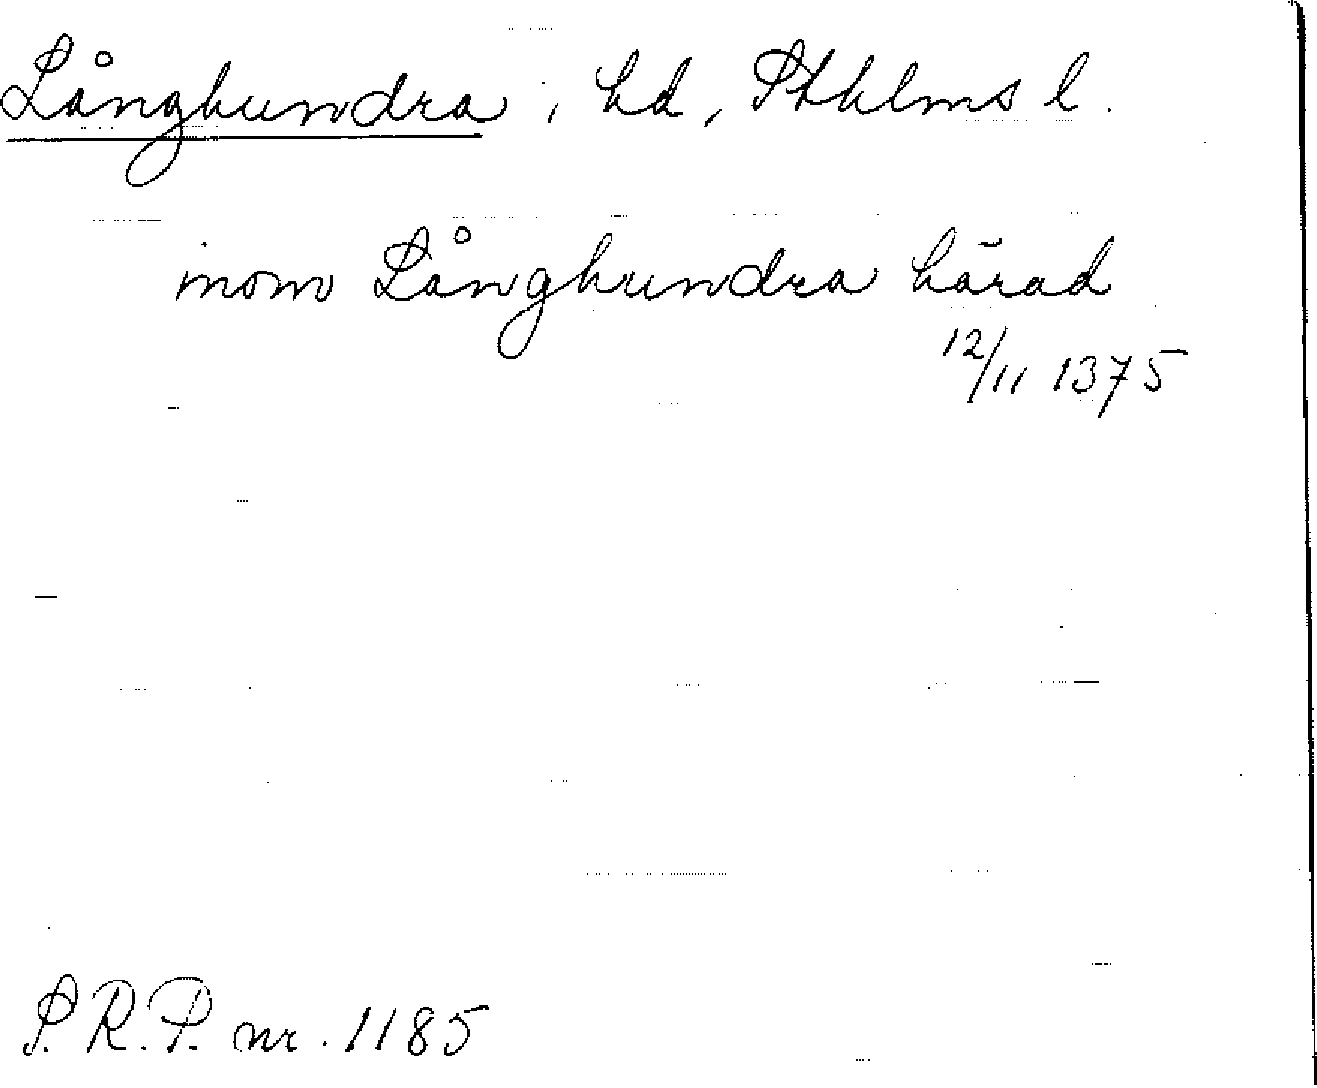 Långhundra, hd, Sthlms l.
inom Långhundra härad
12/11 1375
S.R.P. nr. 1185